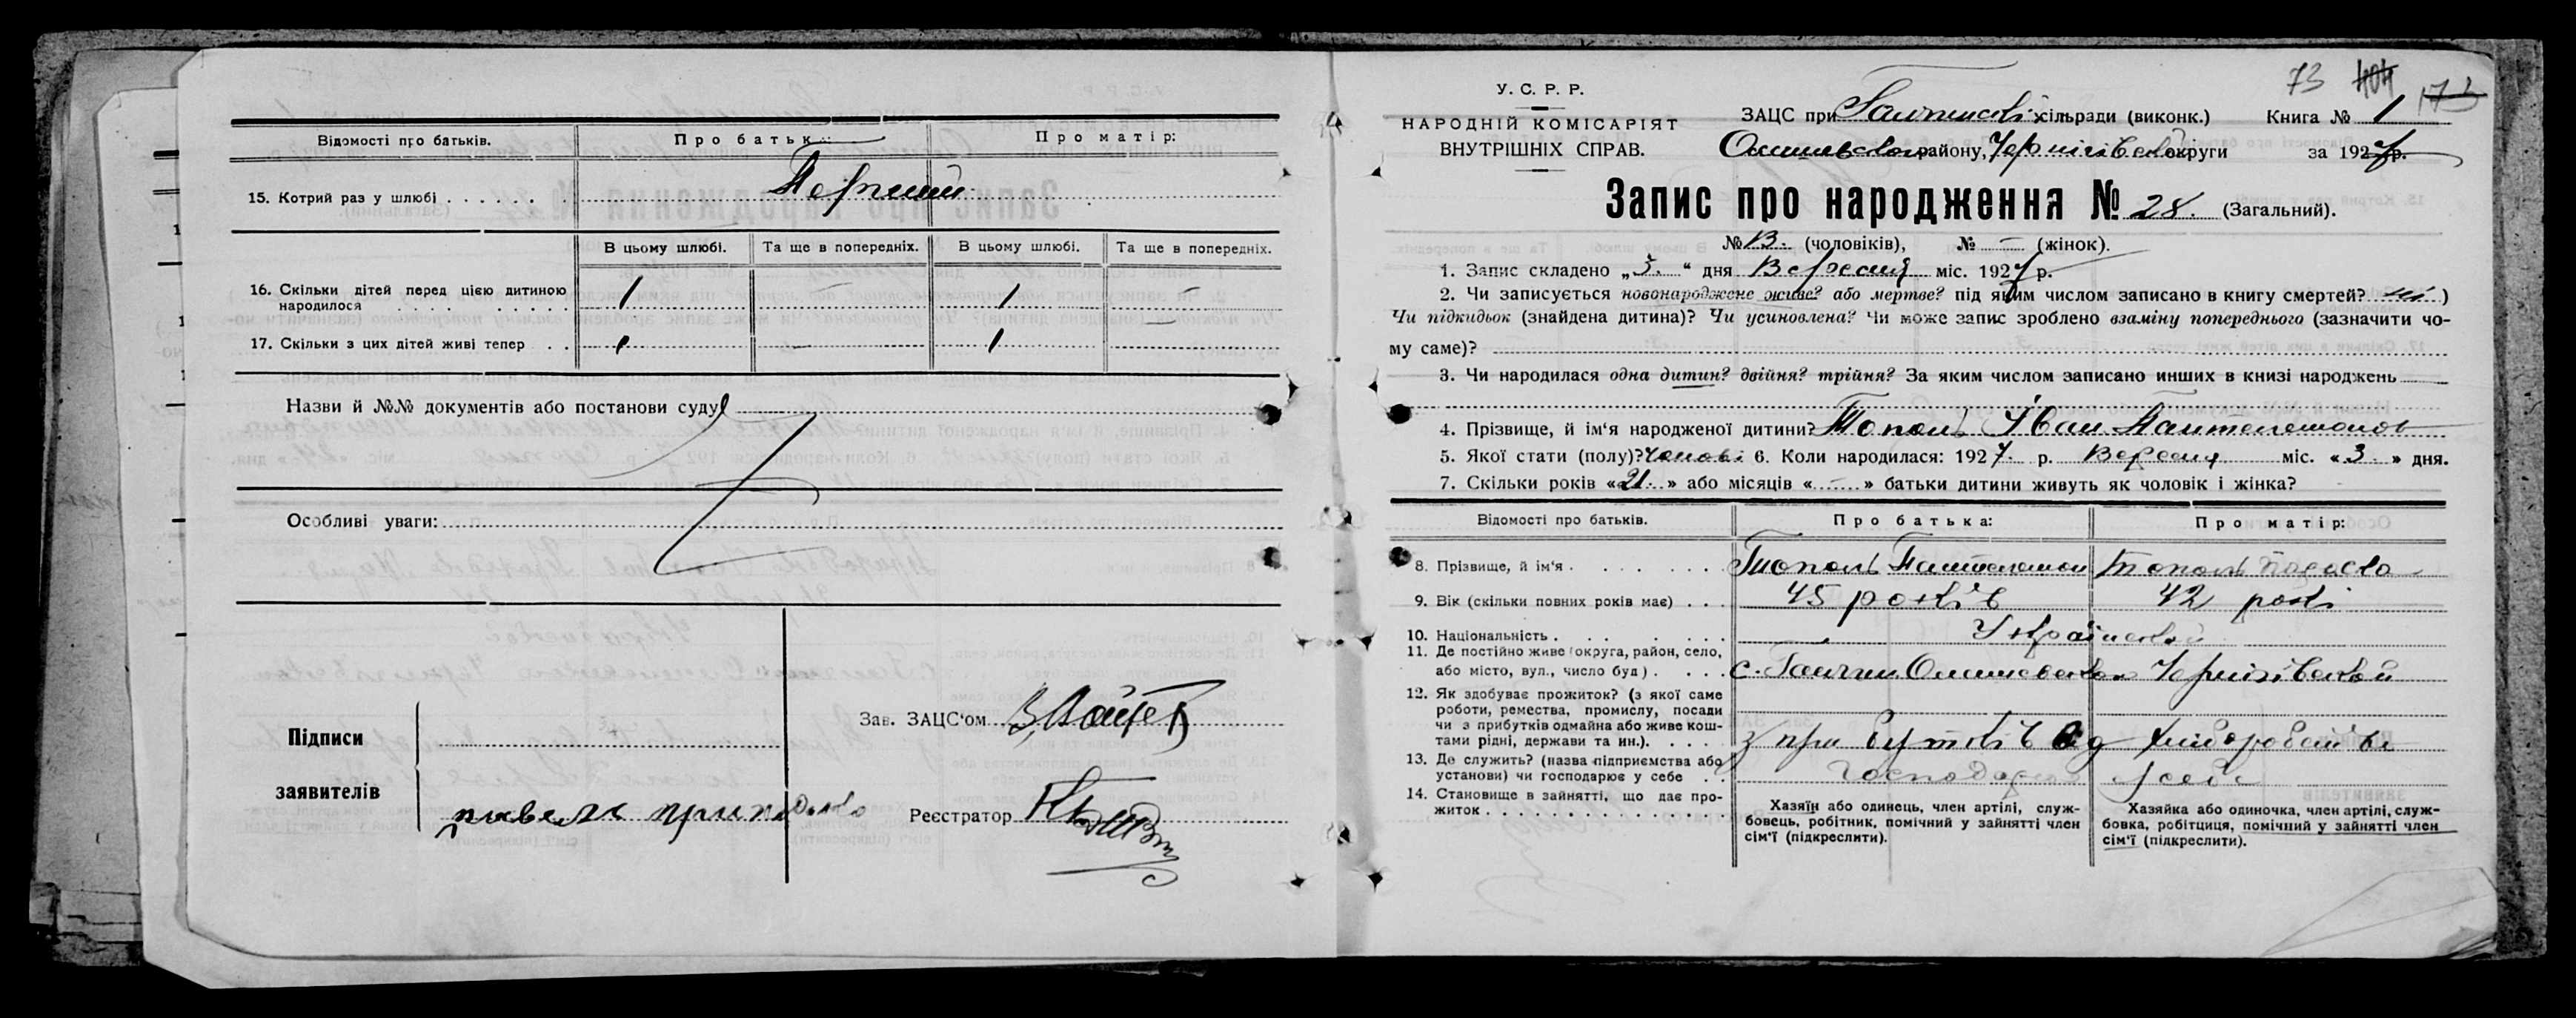 Відомості про батьків.
Про батьк
Про матір:
15. Котрий раз у шлюбі
Перший
В цьому шлюбі.
Та ще в попередніх.
В цьому шлюбі.
Та ще в попередніх.
16. Скільки дітей перед цією дитиною
народилося
1 — 1 —
17. Скільки з цих дітей живі тепер
1 — 1 —
Назви й №№ документів або постанови суду
Особливі уваги:
Підписи
заявителів
Зав. ЗАЦС'ом
Реєстратор
73 404 173
У. С. Р. Р.
НАРОДНІЙ КОМІСАРІЯТ
ВНУТРІШНІХ СПРАВ.
ЗАЦС при сільради (виконк.) Книга № 1
району, Чернігівської округи за 1927 р.
Запис про народження № 28. (Загальний).
№ 13. (чоловіків), № — (жінок).
1. Запис складено „3.“ дня Вересня міс. 1927 р.
2. Чи записується новонароджене живе? або мертве? під яким числом записано в книгу смертей? )
Чи підкидьок (знайдена дитина)? Чи усиновлена? Чи може запис зроблено взаміну попереднього (зазначити чо-
му саме)?
3. Чи народилася одна дитин? двійня? трійня? За яким числом записано инших в книзі народжень
4. Прізвище, й ім'я народженої дитини? Тополь Іван Пантелемонов
5. Якої стати (полу)? 6. Коли народилася: 1927 р. Вересня міс. «3» дня.
7. Скільки років «21.» або місяців «—» батьки дитини живуть як чоловік і жінка?
Відомості про батьків.
Про батька:
Про матір:
8. Прізвище, й ім'я
Тополь Пантелемон
Тополь
9. Вік (скільки повних років має)
45 років
42 рокі
10. Національність
11. Де постійно живе (округа, район, село,
або місто, вул., число буд)
12. Як здобуває прожиток? (з якої саме
роботи, ремества, промислу, посади
чи з прибутків одмайна або живе кош-
тами рідні, держави та ин.).
13. Де служить? (назва підприємства або
установи) чи господарює у себе
14. Становище в зайнятті, що дає про-
житок
Хазяїн або одинець, член артілі, служ-
бовець, робітник, помічний у зайнятті член
сім'ї (підкреслити).
Хазяйка або одиночка, член артілі, служ-
бовка, робітциця, помічний у зайнятті член
сім'ї (підкреслити).